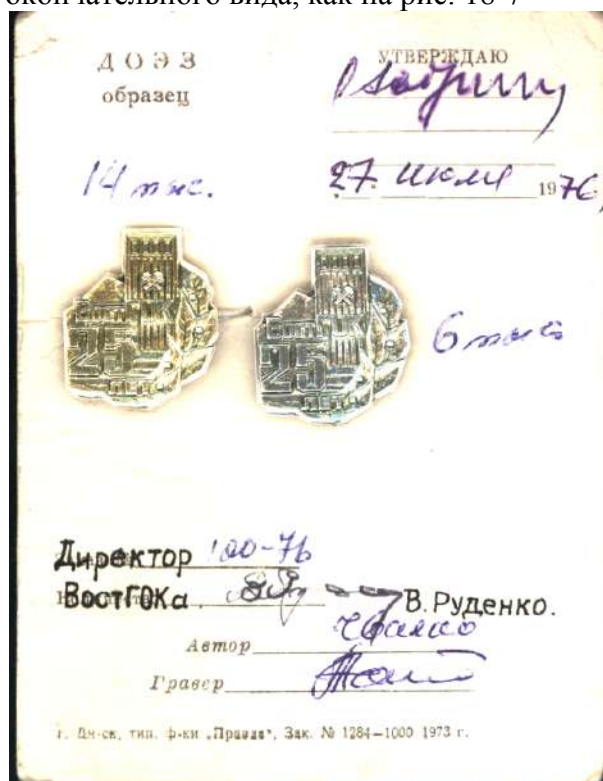 окончательного вида, как на рис. 18-7
ДОЭЗ
образец
УТВЕРЖДАЮ
14 тыс.
27 июля 1976
25
25
6 тыс
Директор 100-76
ВостГОКа. В. Руденко.
Автор
Гравер
г. Дн-ск, тип. ф-ки „Правда“, Зак. № 1284—1000 1973 г.